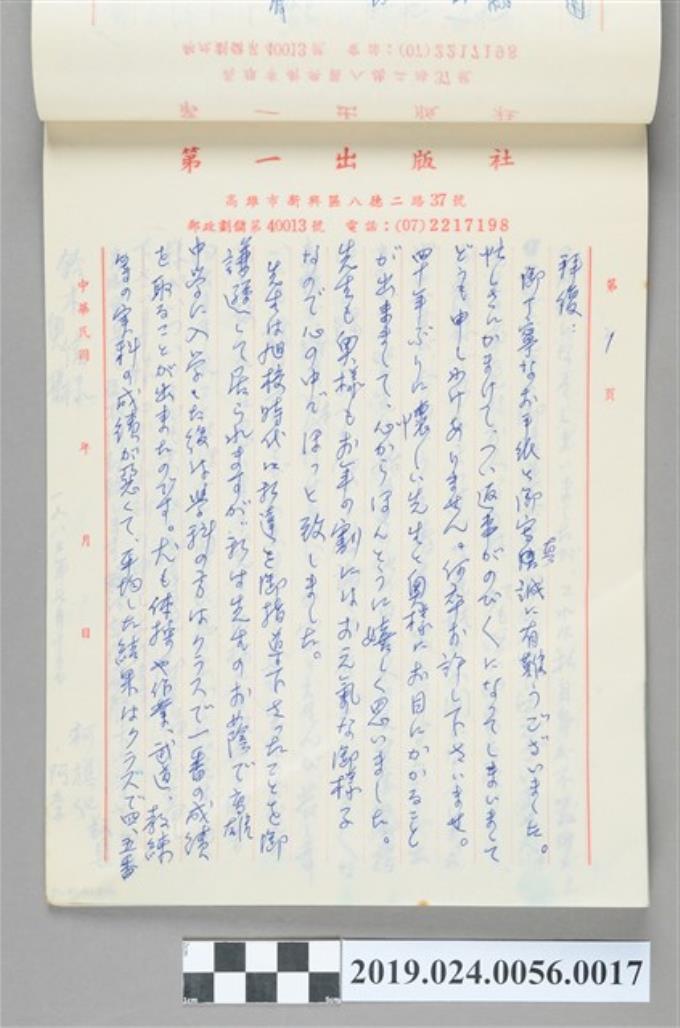 第一出版社
高雄市新興區八德二路37號
郵政劃儲第40013號 電話：(07)2217198
第1頁
拜復：
御丁寧なお手紙と御写真誠に有難うございました。
忙しさにかまけて、つい返事がのびくになってしまいまして
どうも申しわけありません。何卒お許し下さいませ。
四十年ぶりに懐しい先生と奥様にお目にかかること
が出まして、心からほんとうに嬉しく思いました。
先生も奥様もお年の割にはお元氣な御様子
なので心の中でほっと致しました。
先生は旭校時代に私達を御指導下さったことを御
謙遜して居られますが、私は先生のお蔭で高雄
中学に入学した後は学科の方はクラスで一番の成績
を取ることが出来たのです。尤も体操や作業、武道、教練
等の実科の成績が悪くて、平均した結果はクラスで四、五番
中華民國 年 月 日
2019.024.0056.0017